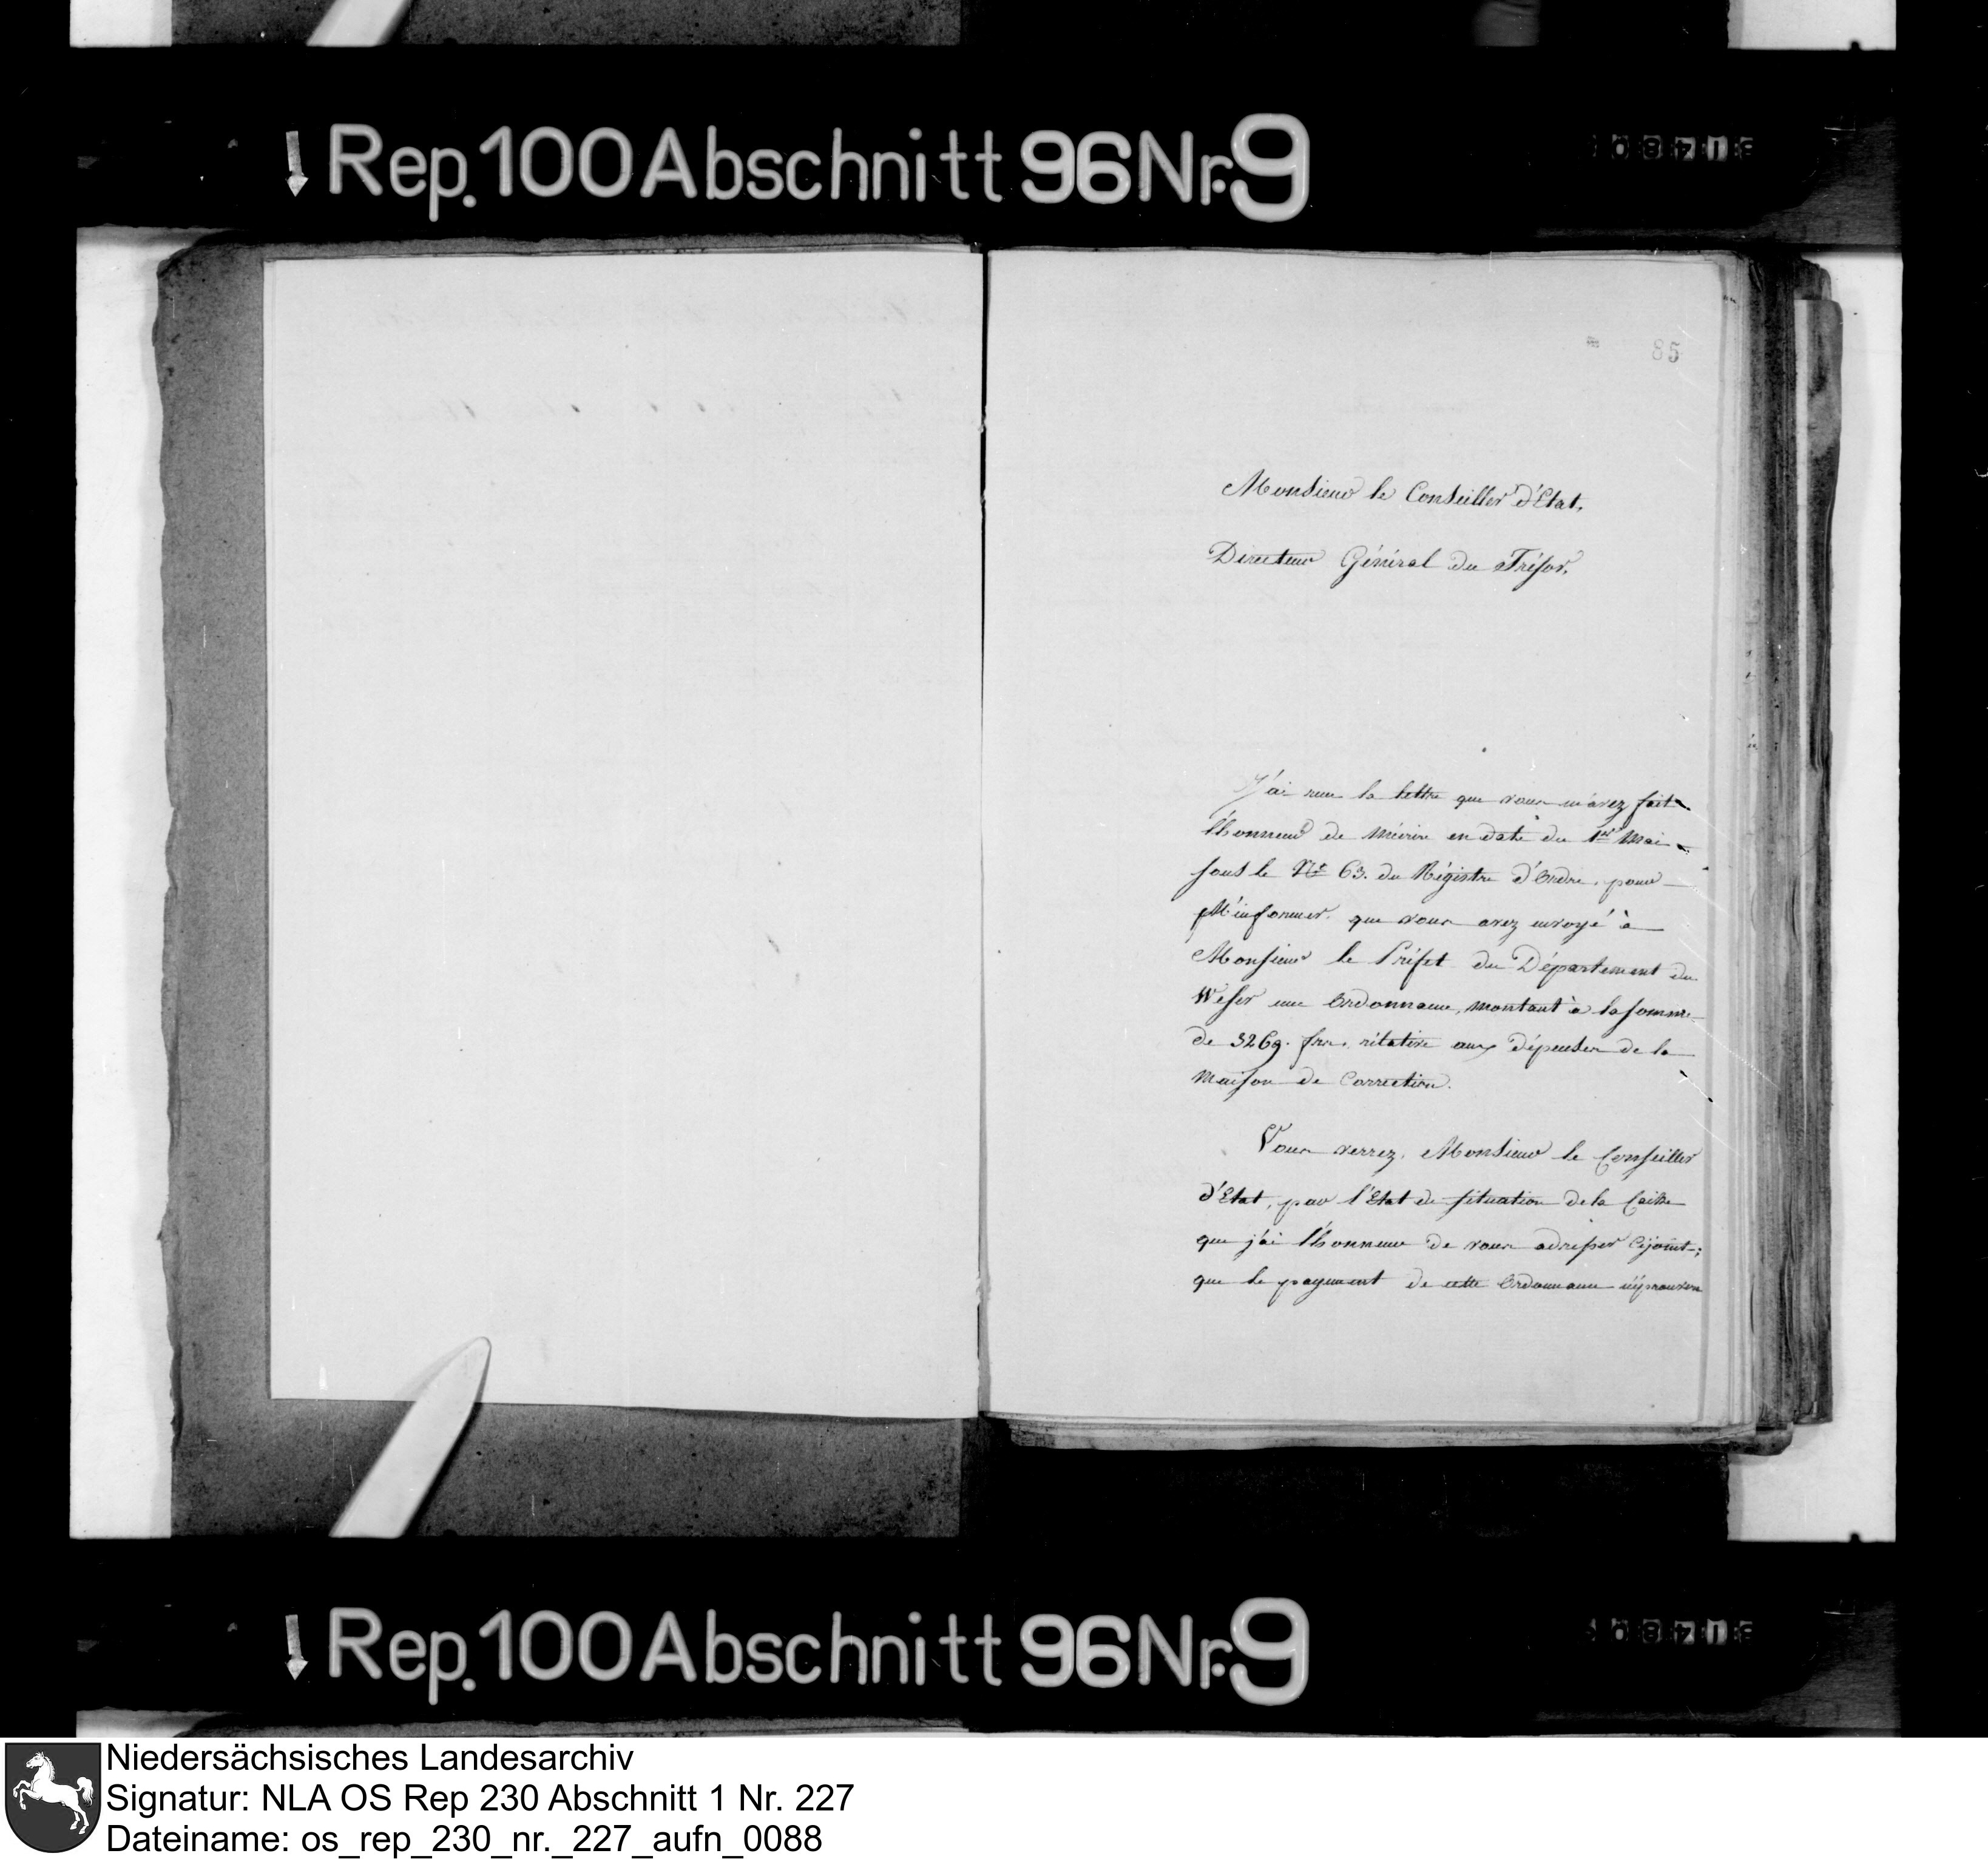 Rep. 100 Abschnitt 96 Nr. 9
85
Monsieur le Conseiller d'Etat,
Directeur Général du Trésor,
J'ai reçu la lettre que vous m'avez fait
l'honneur de m'écrire en date du 1er Mai
sous le No 63. du Régistre d'Ordre, pour
M'informer, que vous avez envoyé à
Monsieur le Préfet du Département du
Weser une Ordonnance, montant à la somme
de 3269. frcs. rélative aux dépenses de la
Maison de Correction.
Vous verrez, Monsieur le Conseiller
d'Etat, par l'Etat de situation de la Caisse
que j'ai l'honneur de vous adresser Cijoint;
que le payement de cette Ordonnance n'éprouvera
Rep. 100 Abschnitt 96 Nr. 9
Niedersächsisches Landesarchiv
Signatur: NLA OS Rep 230 Abschnitt 1 Nr. 227
Dateiname: os_rep_230_nr._227_aufn_0088